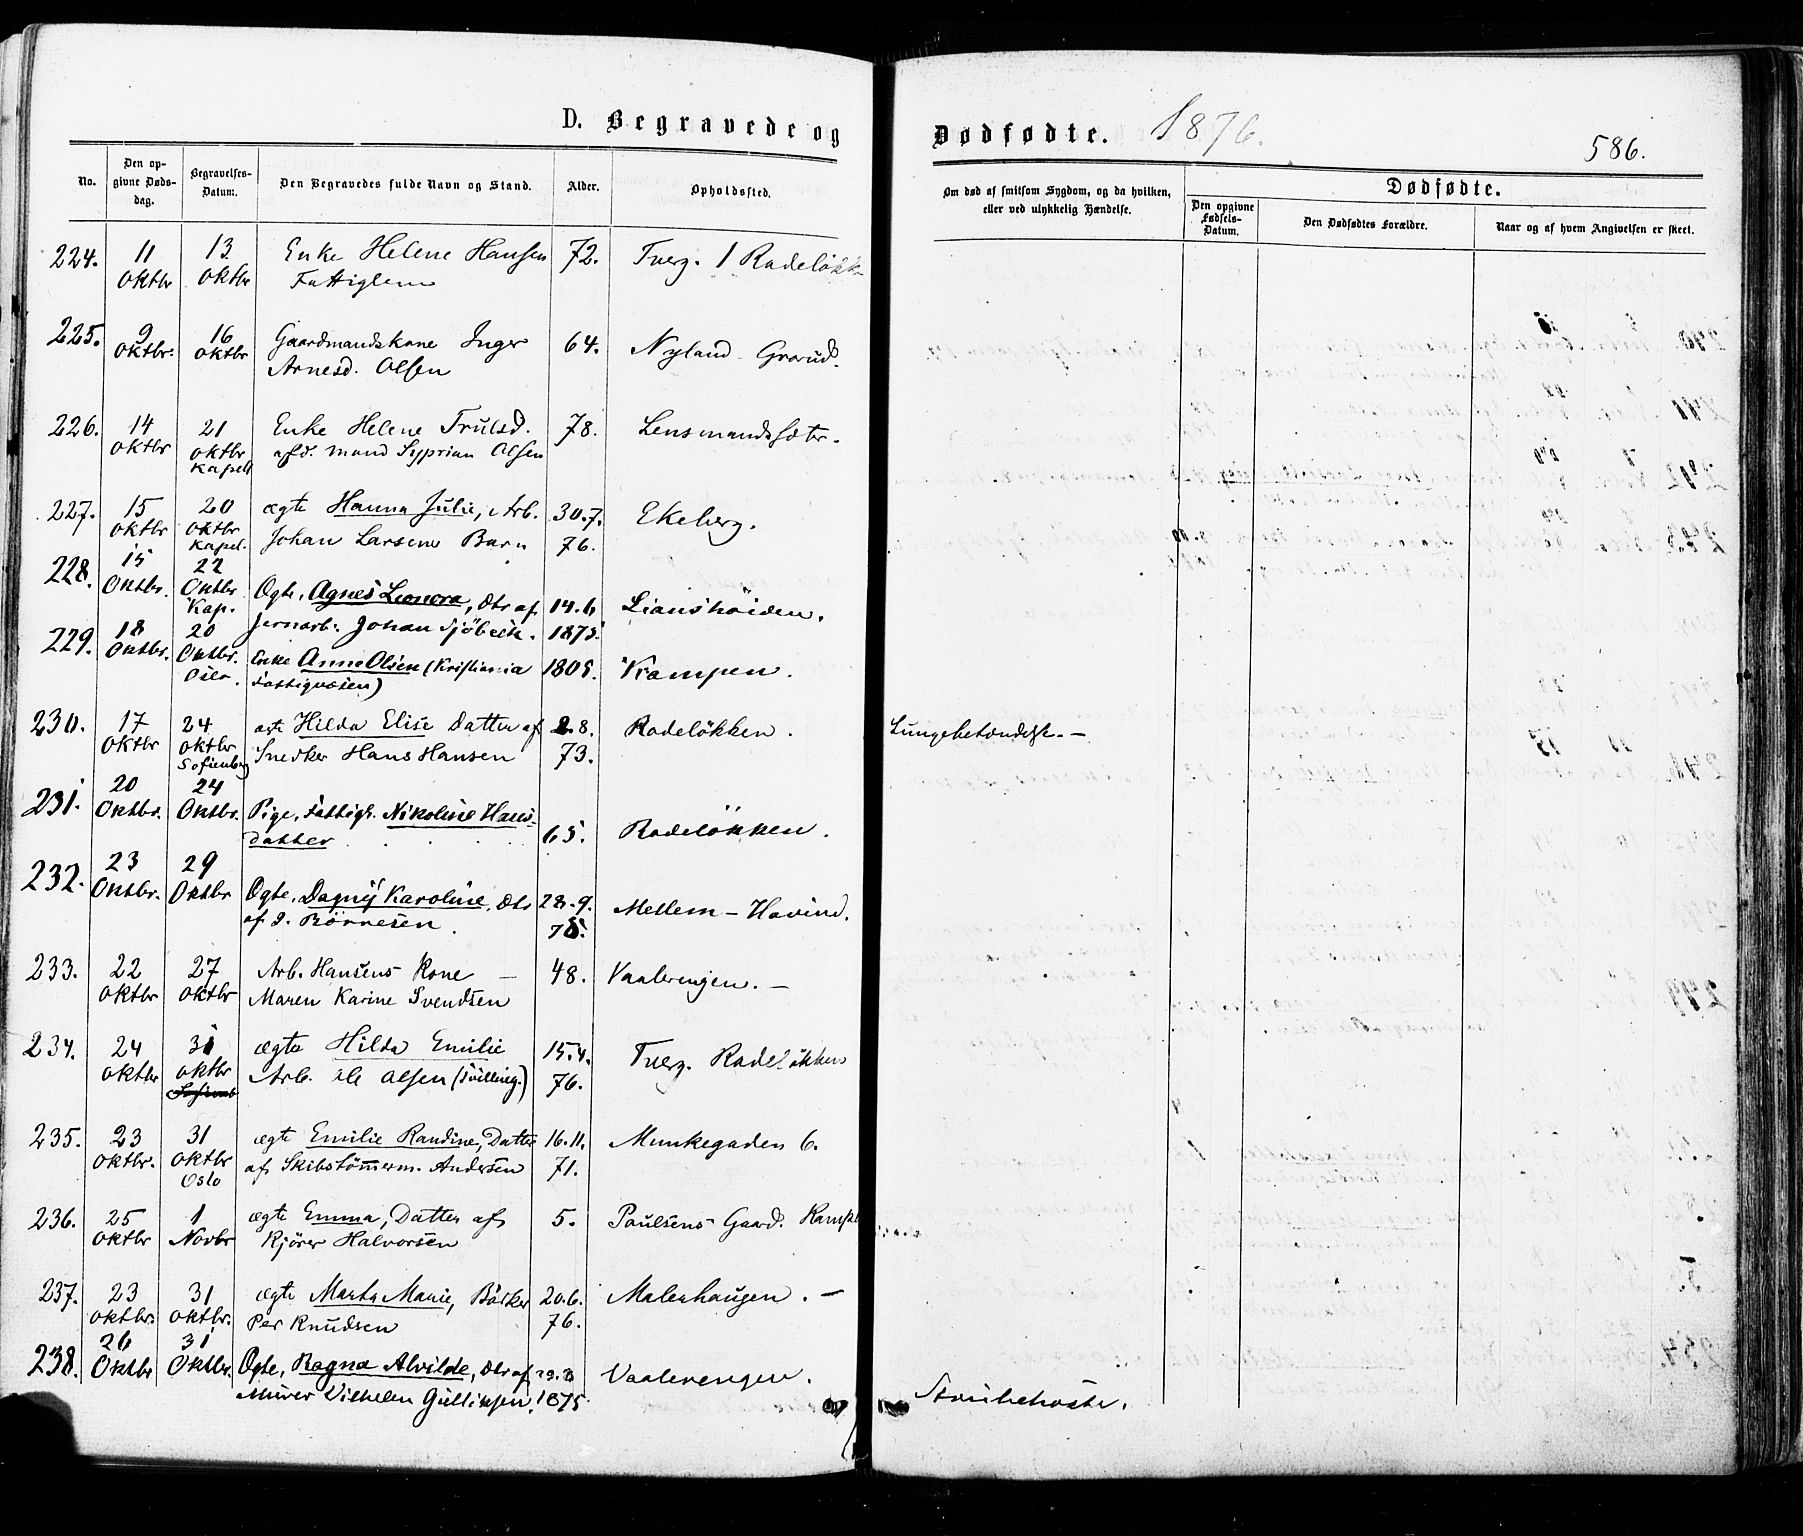 D. Begravede og
Dødfødte. 1876.
586.
No.
Den opgivne Dødsdag.
Begravelses-Datum.
Den Begravedes fulde Navn og Stand.
Alder.
Opholdssted.
Om død af smitsom Sygdom, og da hvilken, eller ved ulykkelig Hændelse.
Dødfødte.
Den opgivne Fødsels-Datum.
Den Dødfødtes Forældre.
Naar og af hvem Angivelsen er skeet.
224. 11 Oktbr 13 Oktbr Enke Helene Hansen 72. Tverg. 1 Rodeløkk
Fattiglem
225. 9 Oktbr. 16 Oktbr Gaardmandskone Inger 64. Nyland Grorud.
Arnesd. Olsen
226. 14 Oktbr 21 Oktbr Kapell Enke Helene Trulsd. 78. Lensmandssæter.
afd. mand Syprian Olsen
227. 15 Oktbr 20 Oktbr Kapel. ægte Hanna Julie, Arb. 30.7. Ekeberg.
Johan Larsens Barn 76.
228. 15 Oktbr. 22 Oktbr Kap. Ægte, Agnes Leonora, Dtr af 14.6 Lianshöiden.
Jernarb. Johan Sjöbeck. 1875.
229. 18 Oktbr. 20 Oktbr. Oslo. Enke Anne Olsen (Kristiania 1805. Kampen.
Fattigvæsen)
230. 17 Oktbr 24 Oktbr. Sofienberg ægte Hilda Elise Datter af 2.8. Rodeløkken. Lungebetændelse. —
Snedker Hans Hansen 73.
231. 20 Oktbr. 24 Oktbr. Pige, Fattigl. Nikoline Hans-
datter 65. Rodeløkken.
232. 23 Oktbr. 29 Oktbr Ægte, Dagny Karoline, Dtr 28.9. Mellem-Hovind.
af J. Börresen. 75.
233. 22 Oktbr 27 Oktbr Arb. Hansens Kone — 48. Vaalerengen. —
Maren Karine Svendsen
234. 24 Oktbr 31 Oktbr ægte Hilda Emilie 15.4. Tverg. Rodeløkken
Arb. Ole Olsen (Tvilling.) 76.
235. 23 Oktbr. 31 Oktbr Oslo ægte Emilie Randine, Datter 16.11. Munkegaden 6.
af Skibstømmerm. Andersen 71.
236. 25 Oktbr 1 Novbr ægte Emma, Datter af 5. Paulsens Gaard. Kamp
Kjører Halvorsen
237. 23 Oktbr. 31 Oktbr. ægte Marta Marie, Bödker 20.6. Malerhaugen. —
Per Knudsen 76.
238. 26 Oktbr 31 Oktbr. Ægte, Ragna Alvilde, Dtr af 29.8 Vaalerengen.
Murer Vilhelm Gulliksen. 1875 Strubehoste.